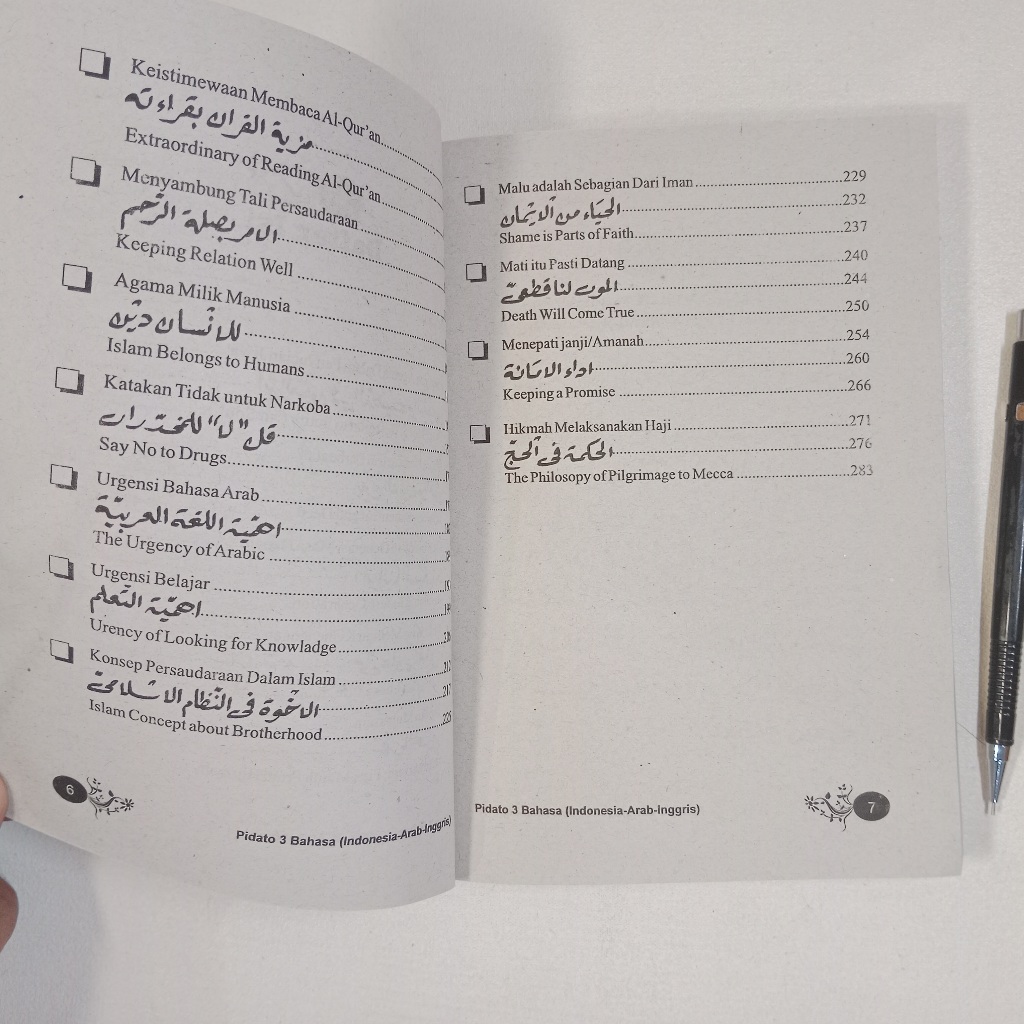 Keistimewaan Membaca Al-Qur'an
مزية القران بقراءته
Extraordinary of Reading Al-Qur'an
Menyambung Tali Persaudaraan
الامر بصلة الرّحم
Keeping Relation Well
Agama Milik Manusia
للانْسان ديْن
Islam Belongs to Humans
Katakan Tidak untuk Narkoba
قل "لا" للمخدّرات
Say No to Drugs
Urgensi Bahasa Arab
اهمّيّة اللغة العربيّة
The Urgency of Arabic
Urgensi Belajar
اهمّيّة التّعلم
Urency of Looking for Knowladge
Konsep Persaudaraan Dalam Islam
الاخْوة فى النّظام الاسْلامىّ
Islam Concept about Brotherhood
6
Pidato 3 Bahasa (Indonesia-Arab-Inggris)
Malu adalah Sebagian Dari Iman 229
الحيَاء من الْايْمان 232
Shame is Parts of Faith 237
Mati itu Pasti Datang 240
الموت لنا قطعىّ 244
Death Will Come True 250
Menepati janji/Amanah 254
اداء الامَانة 260
Keeping a Promise 266
Hikmah Melaksanakan Haji 271
الحكمة فى الْحجّ 276
The Philosopy of Pilgrimage to Mecca 283
Pidato 3 Bahasa (Indonesia-Arab-Inggris)
7